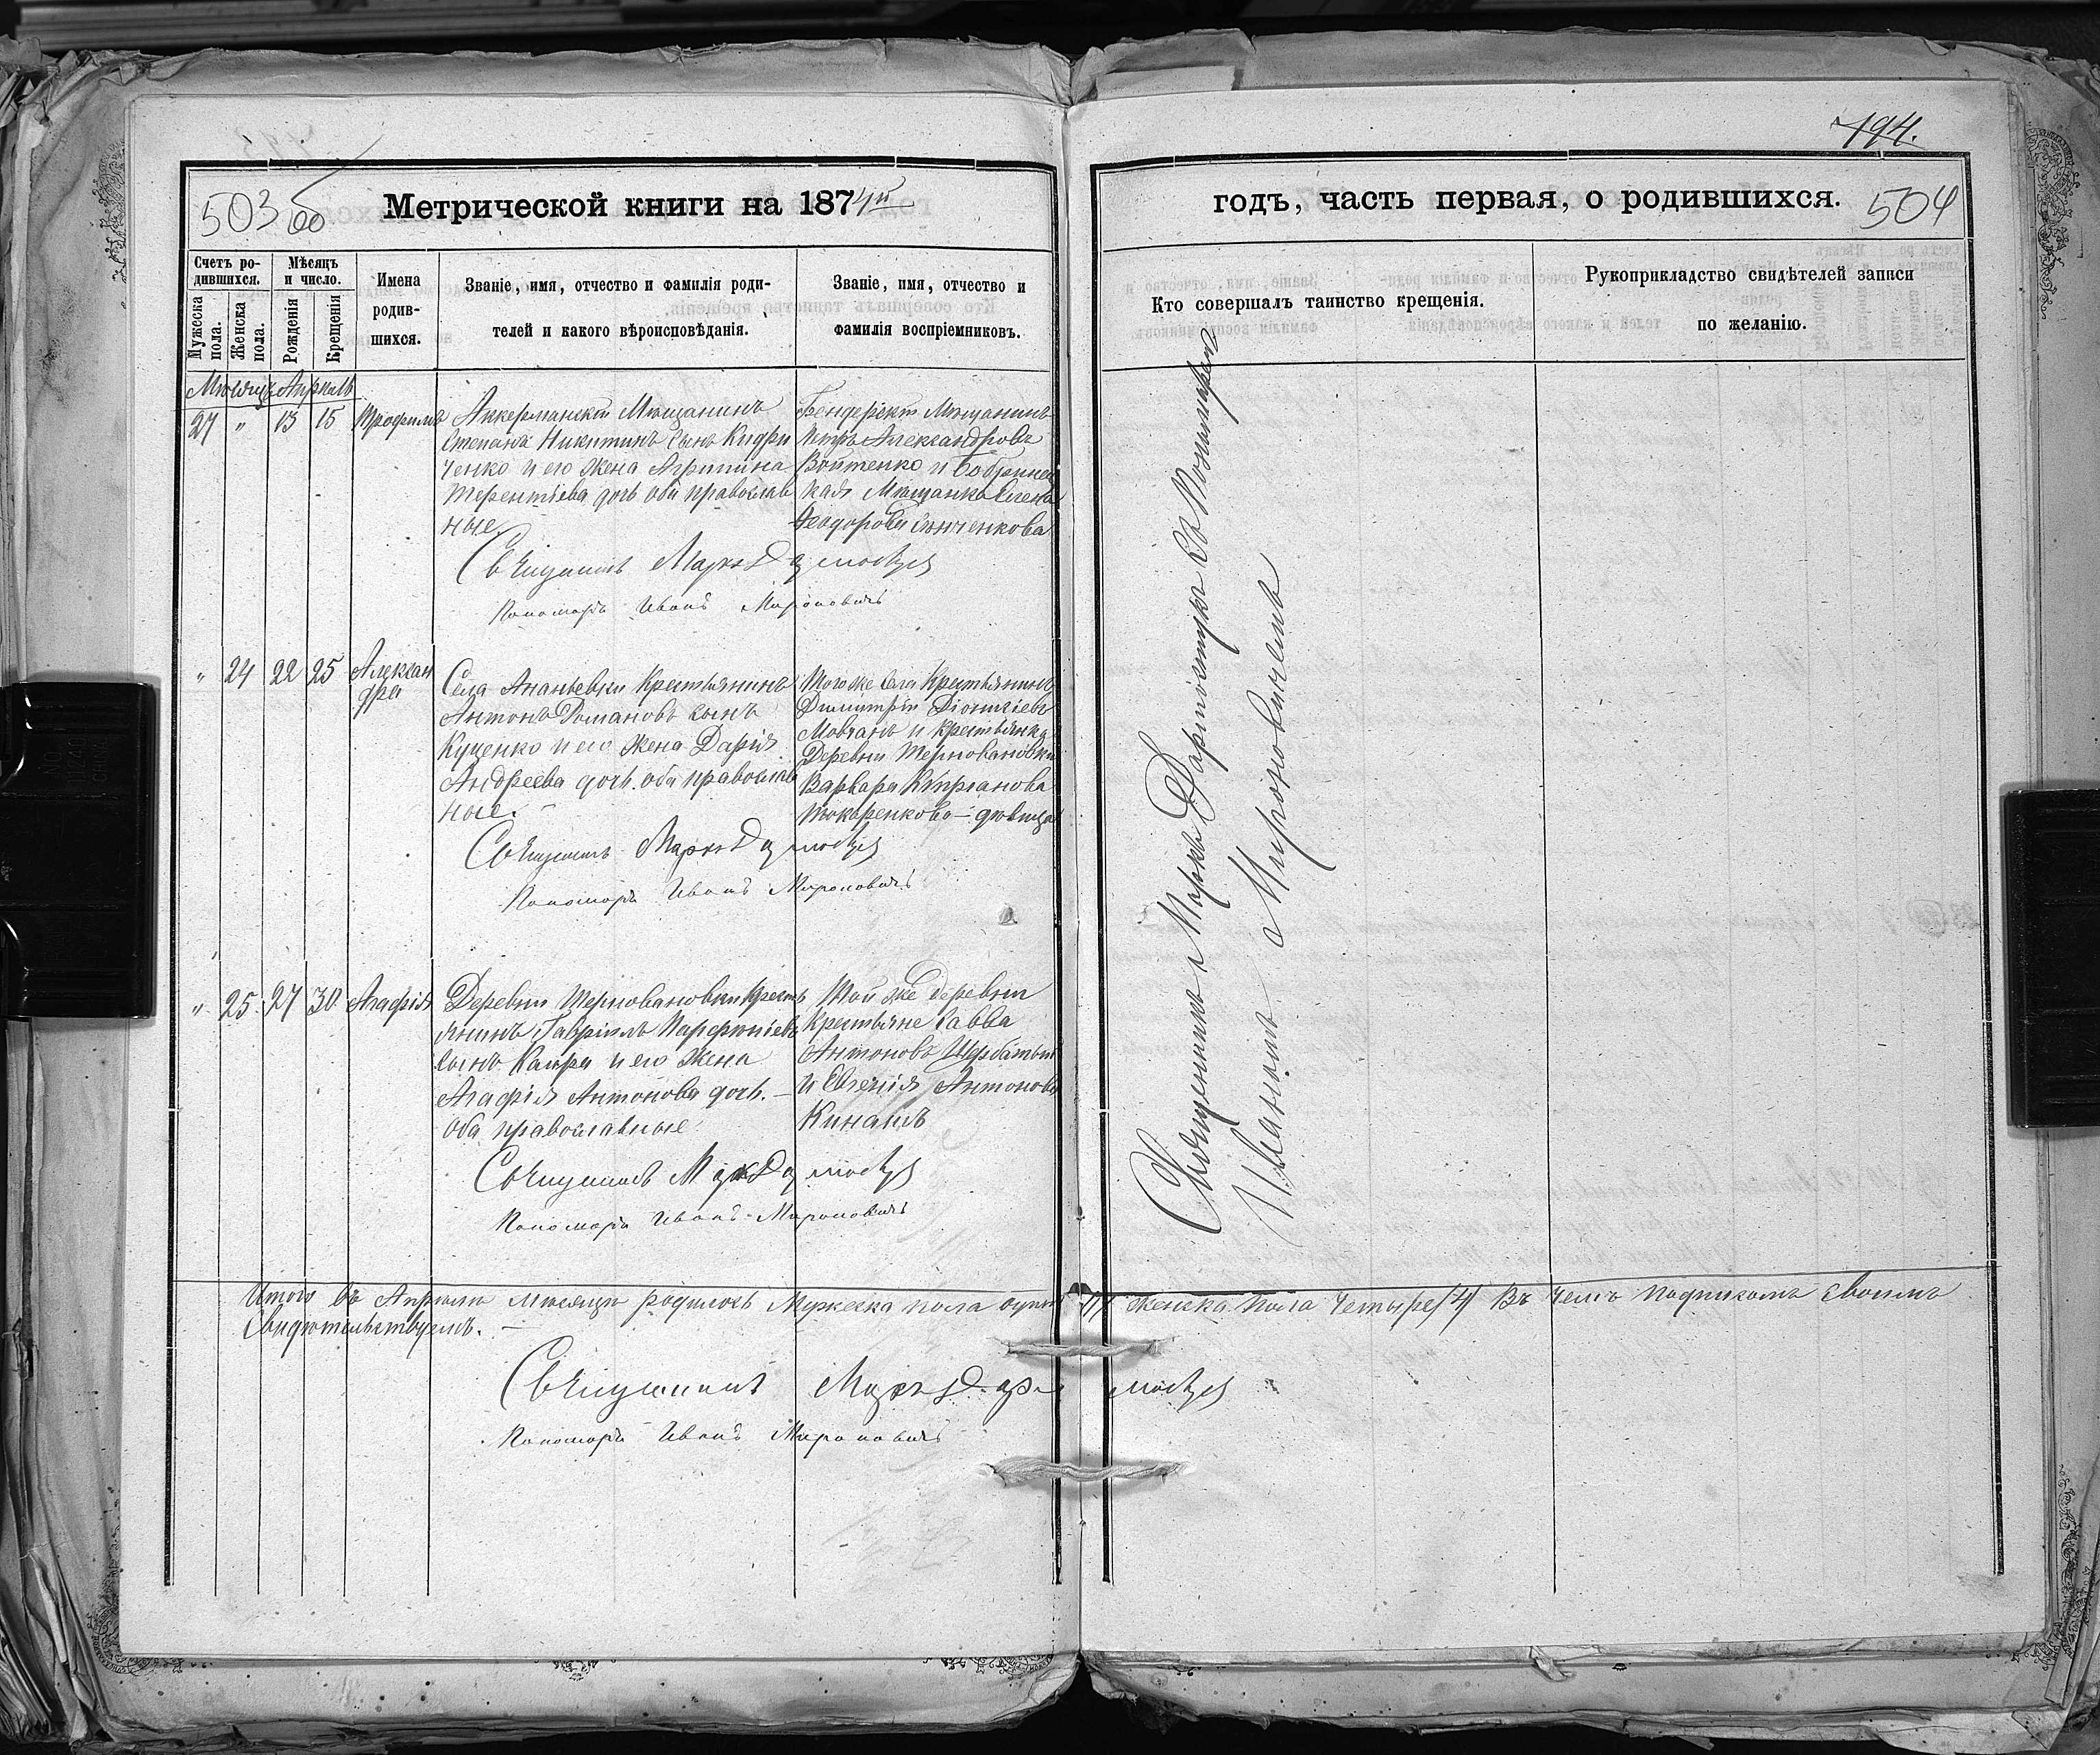 194.
503 об
Метрической книги на 1874й
годъ, часть первая, о родившихся.
504
Счетъ родившихся.
Мужеска пола.
Женска пола.
Мѣсяцъ и число.
Рожденія
Крещенія
Имена родив-
шихся.
Званіе, имя, отчество и фамилія роди-
телей и какого вѣроисповѣданія.
Званіе, имя, отчество и
фамилія воспріемниковъ.
Кто совершалъ таинство крещенія.
Рукоприкладство свидѣтелей записи
по желанію.
Мѣсяцъ Апрѣль
27 " 13 15 Трофимъ
Аккерманскій Мѣщанинъ
Степанъ Никитинъ сынъ Кидри
ченко и его жена Агрипина
Терентіева дочь оба православ
ные
Бендерскій Мѣщанинъ
Петръ Александровъ
Войтенко и Бобринец
кая Мѣщанка Елена
Феодорова
Священникъ Маркъ
Пономарь Иванъ Мироновичъ
" 24 22 25 Александра
Села Ананьевки Крестьянинъ
Антонъ Романовъ сынъ
Куценко и его жена Дарія
Андреева дочь. оба православ
ные.
Того же села Крестьянинъ
Димитрій Діонисіевъ
Мовчанъ и крестьянка
Деревни Терновановки
Варвара Кипріанова
Токаренкова - дѣвица
Священникъ Маркъ
Пономарь Иванъ Мироновичъ
" 25. 27 30 Агафія
Деревни Терновановки Кресть
янинъ Гавріилъ Парфеніевъ
сынъ и его жена
Агафія Антонова дочь. -
оба православные.
Той же Деревни
Крестьяне Савва
Антоновъ Щербатый
и Евгенія Антонова
Кинашъ
Священникъ Маркъ
Пономарь Иванъ Мироновичъ
Священникъ Маркъ съ Пономаремъ
Иваномъ Мироновичемъ
Итого въ Апрѣлѣ мѣсяцѣ родилось Мужеска пола одинъ /1/ женска пола четыре /4/ Въ чемъ подписомъ своимъ
Свидѣтельствуемъ. -
Священникъ Маркъ
Пономарь Иванъ Мироновичъ